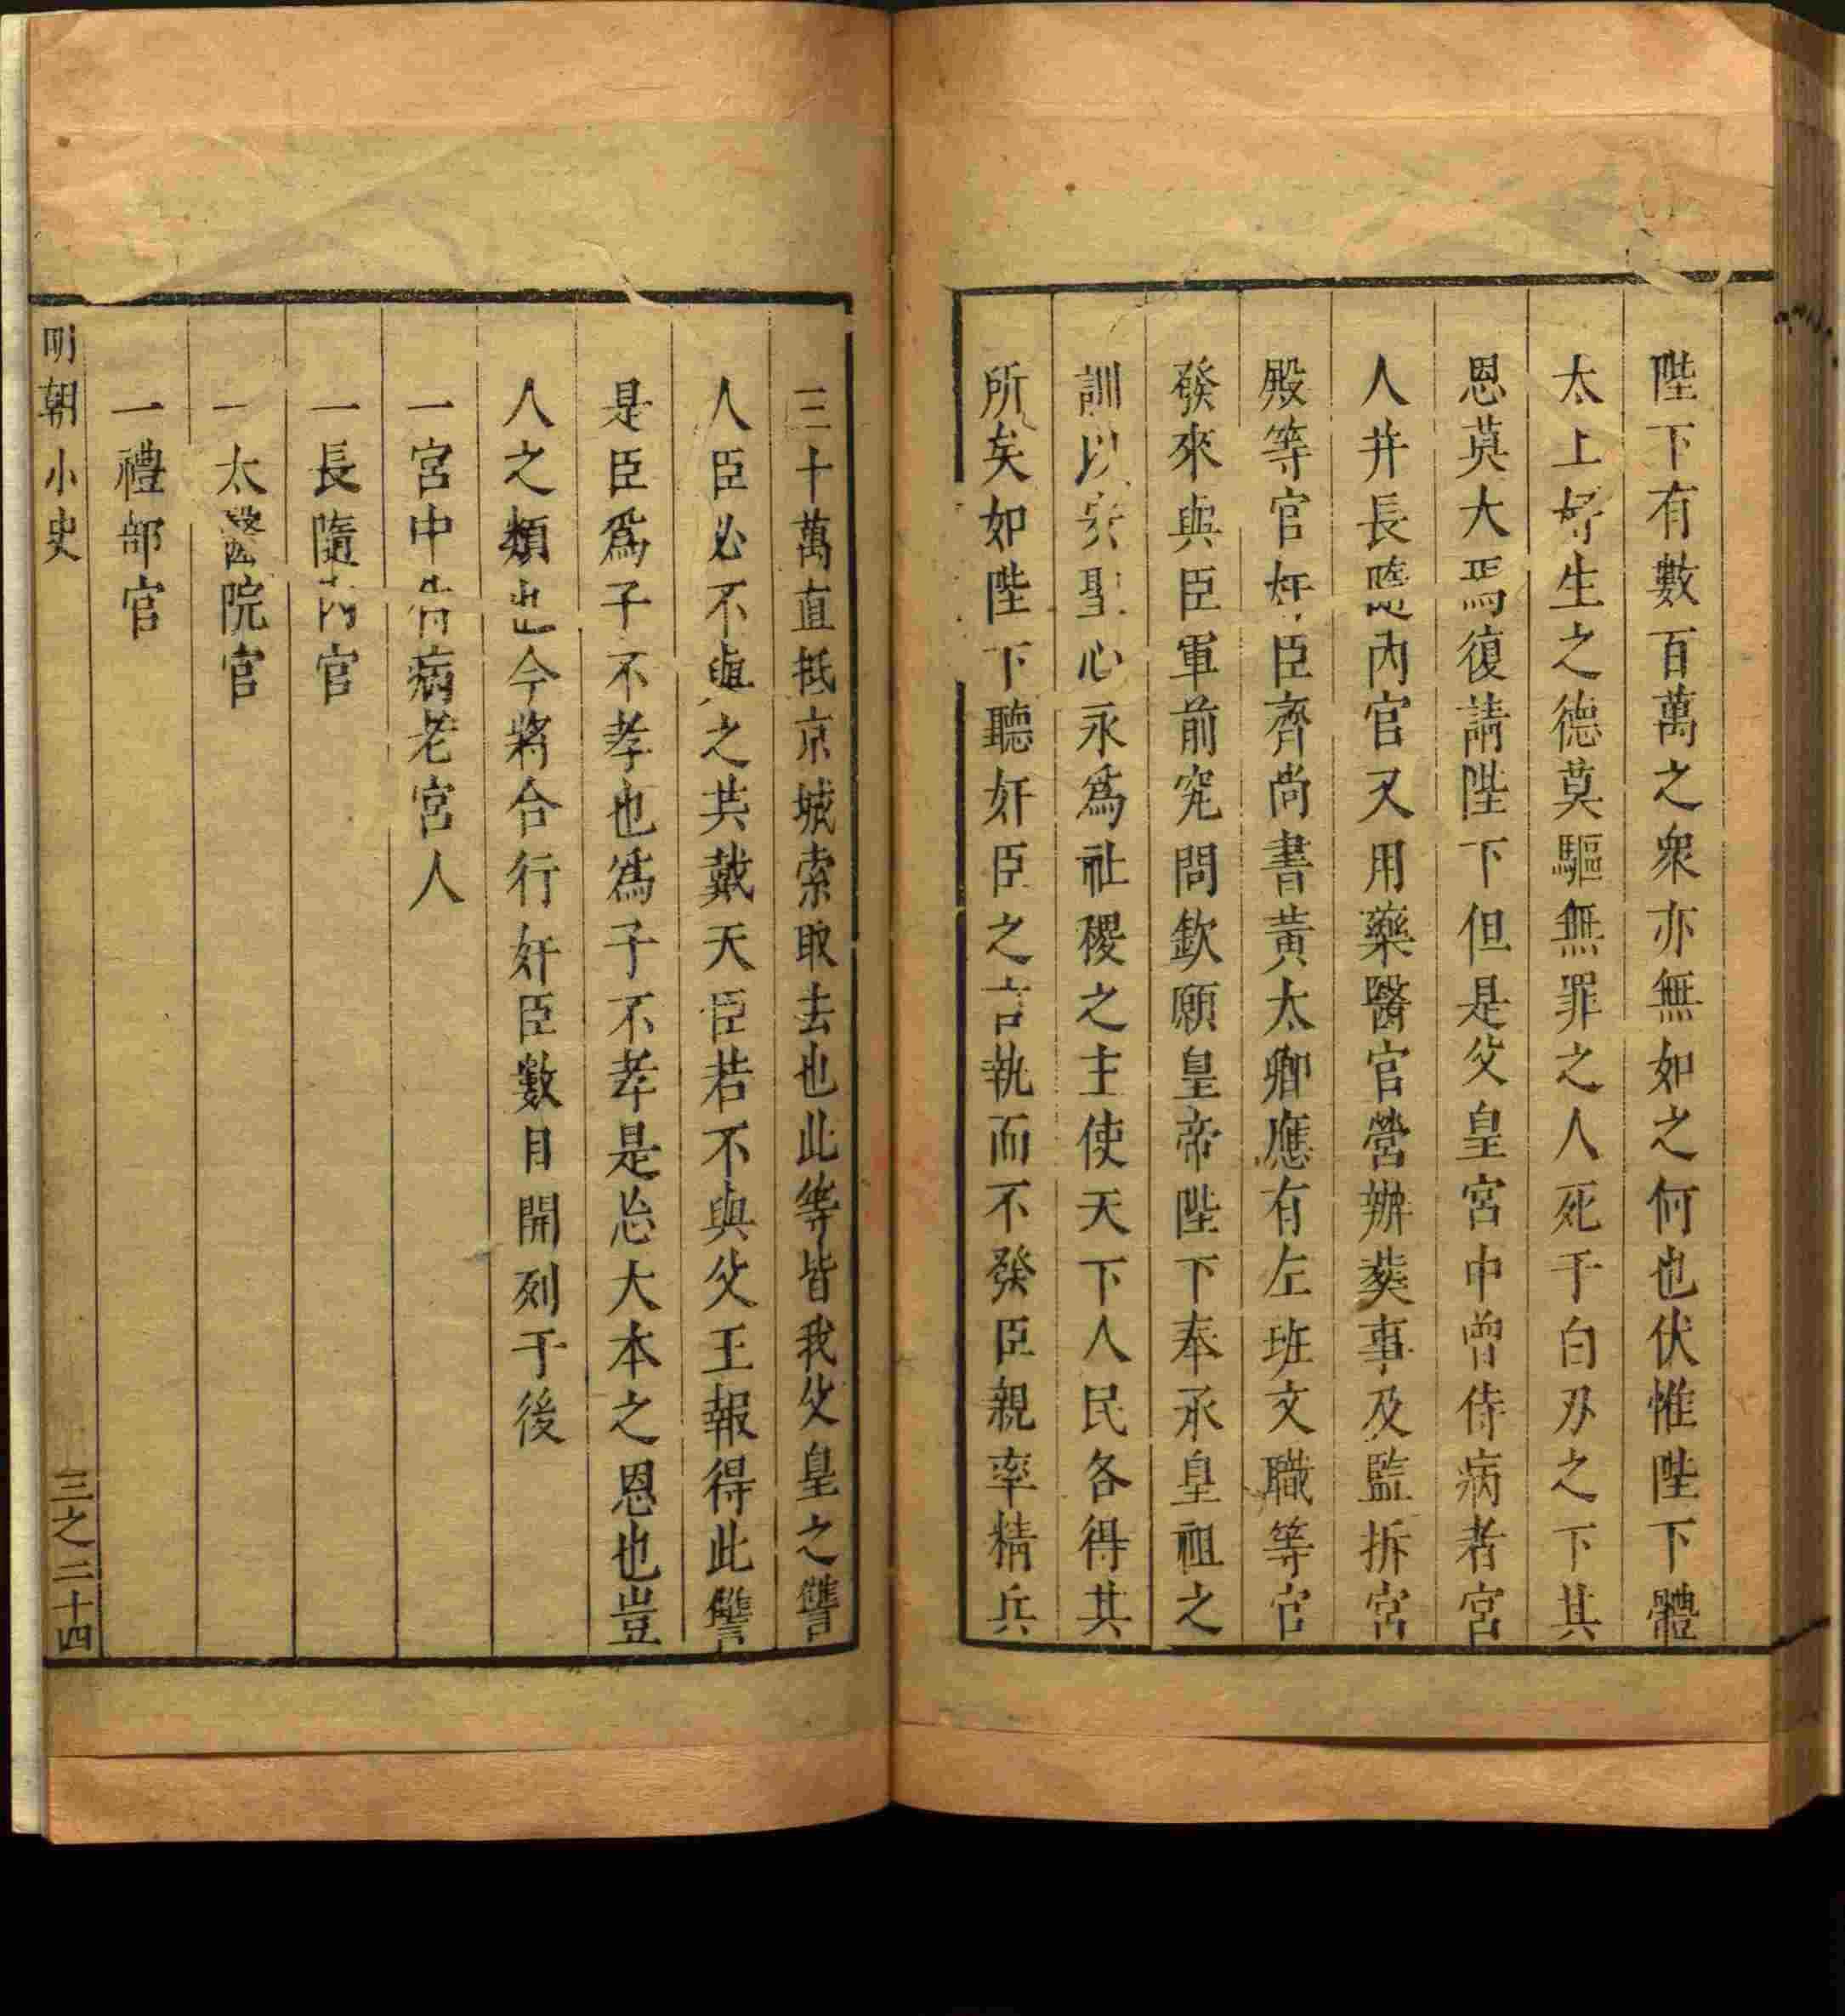 陛下有數百萬之衆亦無如之何也伏惟陛下體
太上好生之德莫驅無罪之人死于白刃之下其
恩莫大焉復請陛下但是父皇宮中曾侍病者宮
人并長隨內官又用藥醫官營辦葬事及監拆宮
殿等官奸臣齊尚書黃太卿應有左班文職等官
發來與臣軍前究問欽願皇帝陛下奉承皇祖之
訓以安聖心永爲社稷之主使天下人民各得其
所矣如陛下聽奸臣之言執而不發臣親率精兵
三十萬直抵京城索取去也此等皆我父皇之讐
人臣必不與之共戴天臣若不與父王報得此讐
是臣爲子不孝也爲子不孝是忘大本之恩也豈
人之類也今將合行奸臣數目開列于後
一宮中侍病老宮人
一長隨內官
一太醫院官
一禮部官
明朝小史
三之二十四